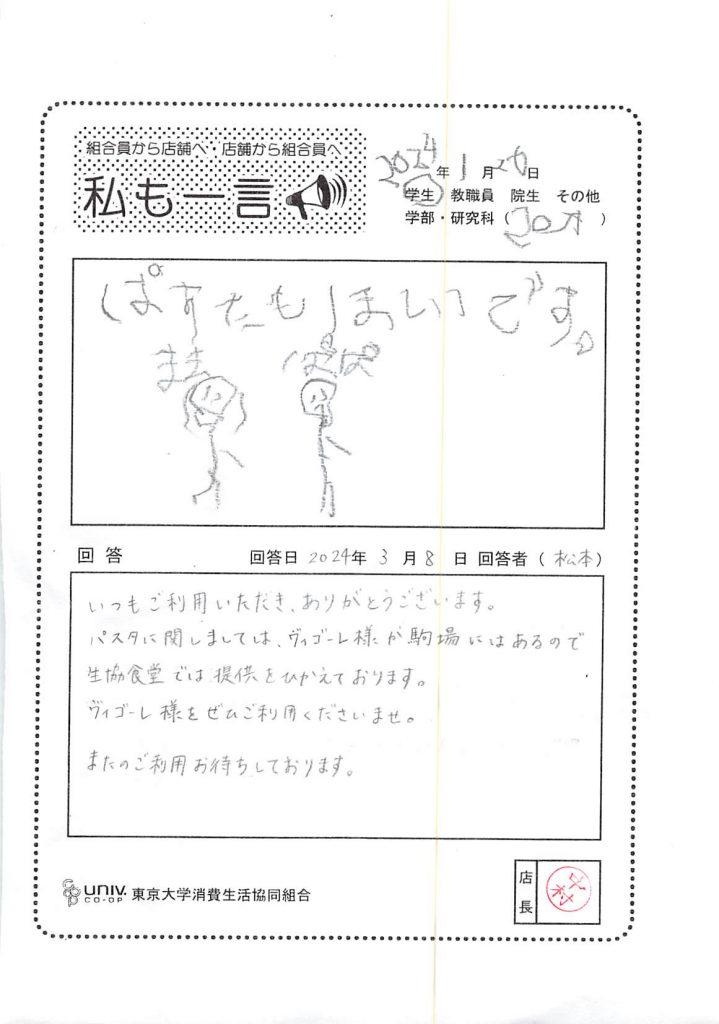 組合員から店舗へ・店舗から組合員へ
私も一言
2024年1月26日
学生 教職員 院生 その他
学部・研究科 ( )
ぱすたもしまいつです。
まま ぱぱ
回答 回答日 2024年 3月 8日 回答者 (松本)
いつもご利用いただき、ありがとうございます。
パスタに関しましては、ヴィゴーレ様が駒場にはあるので
生協食堂では提供をひかえております。
ヴィゴーレ様をぜひご利用くださいませ。
またのご利用お待ちしております。
UNIV. CO-OP 東京大学消費生活協同組合
店長